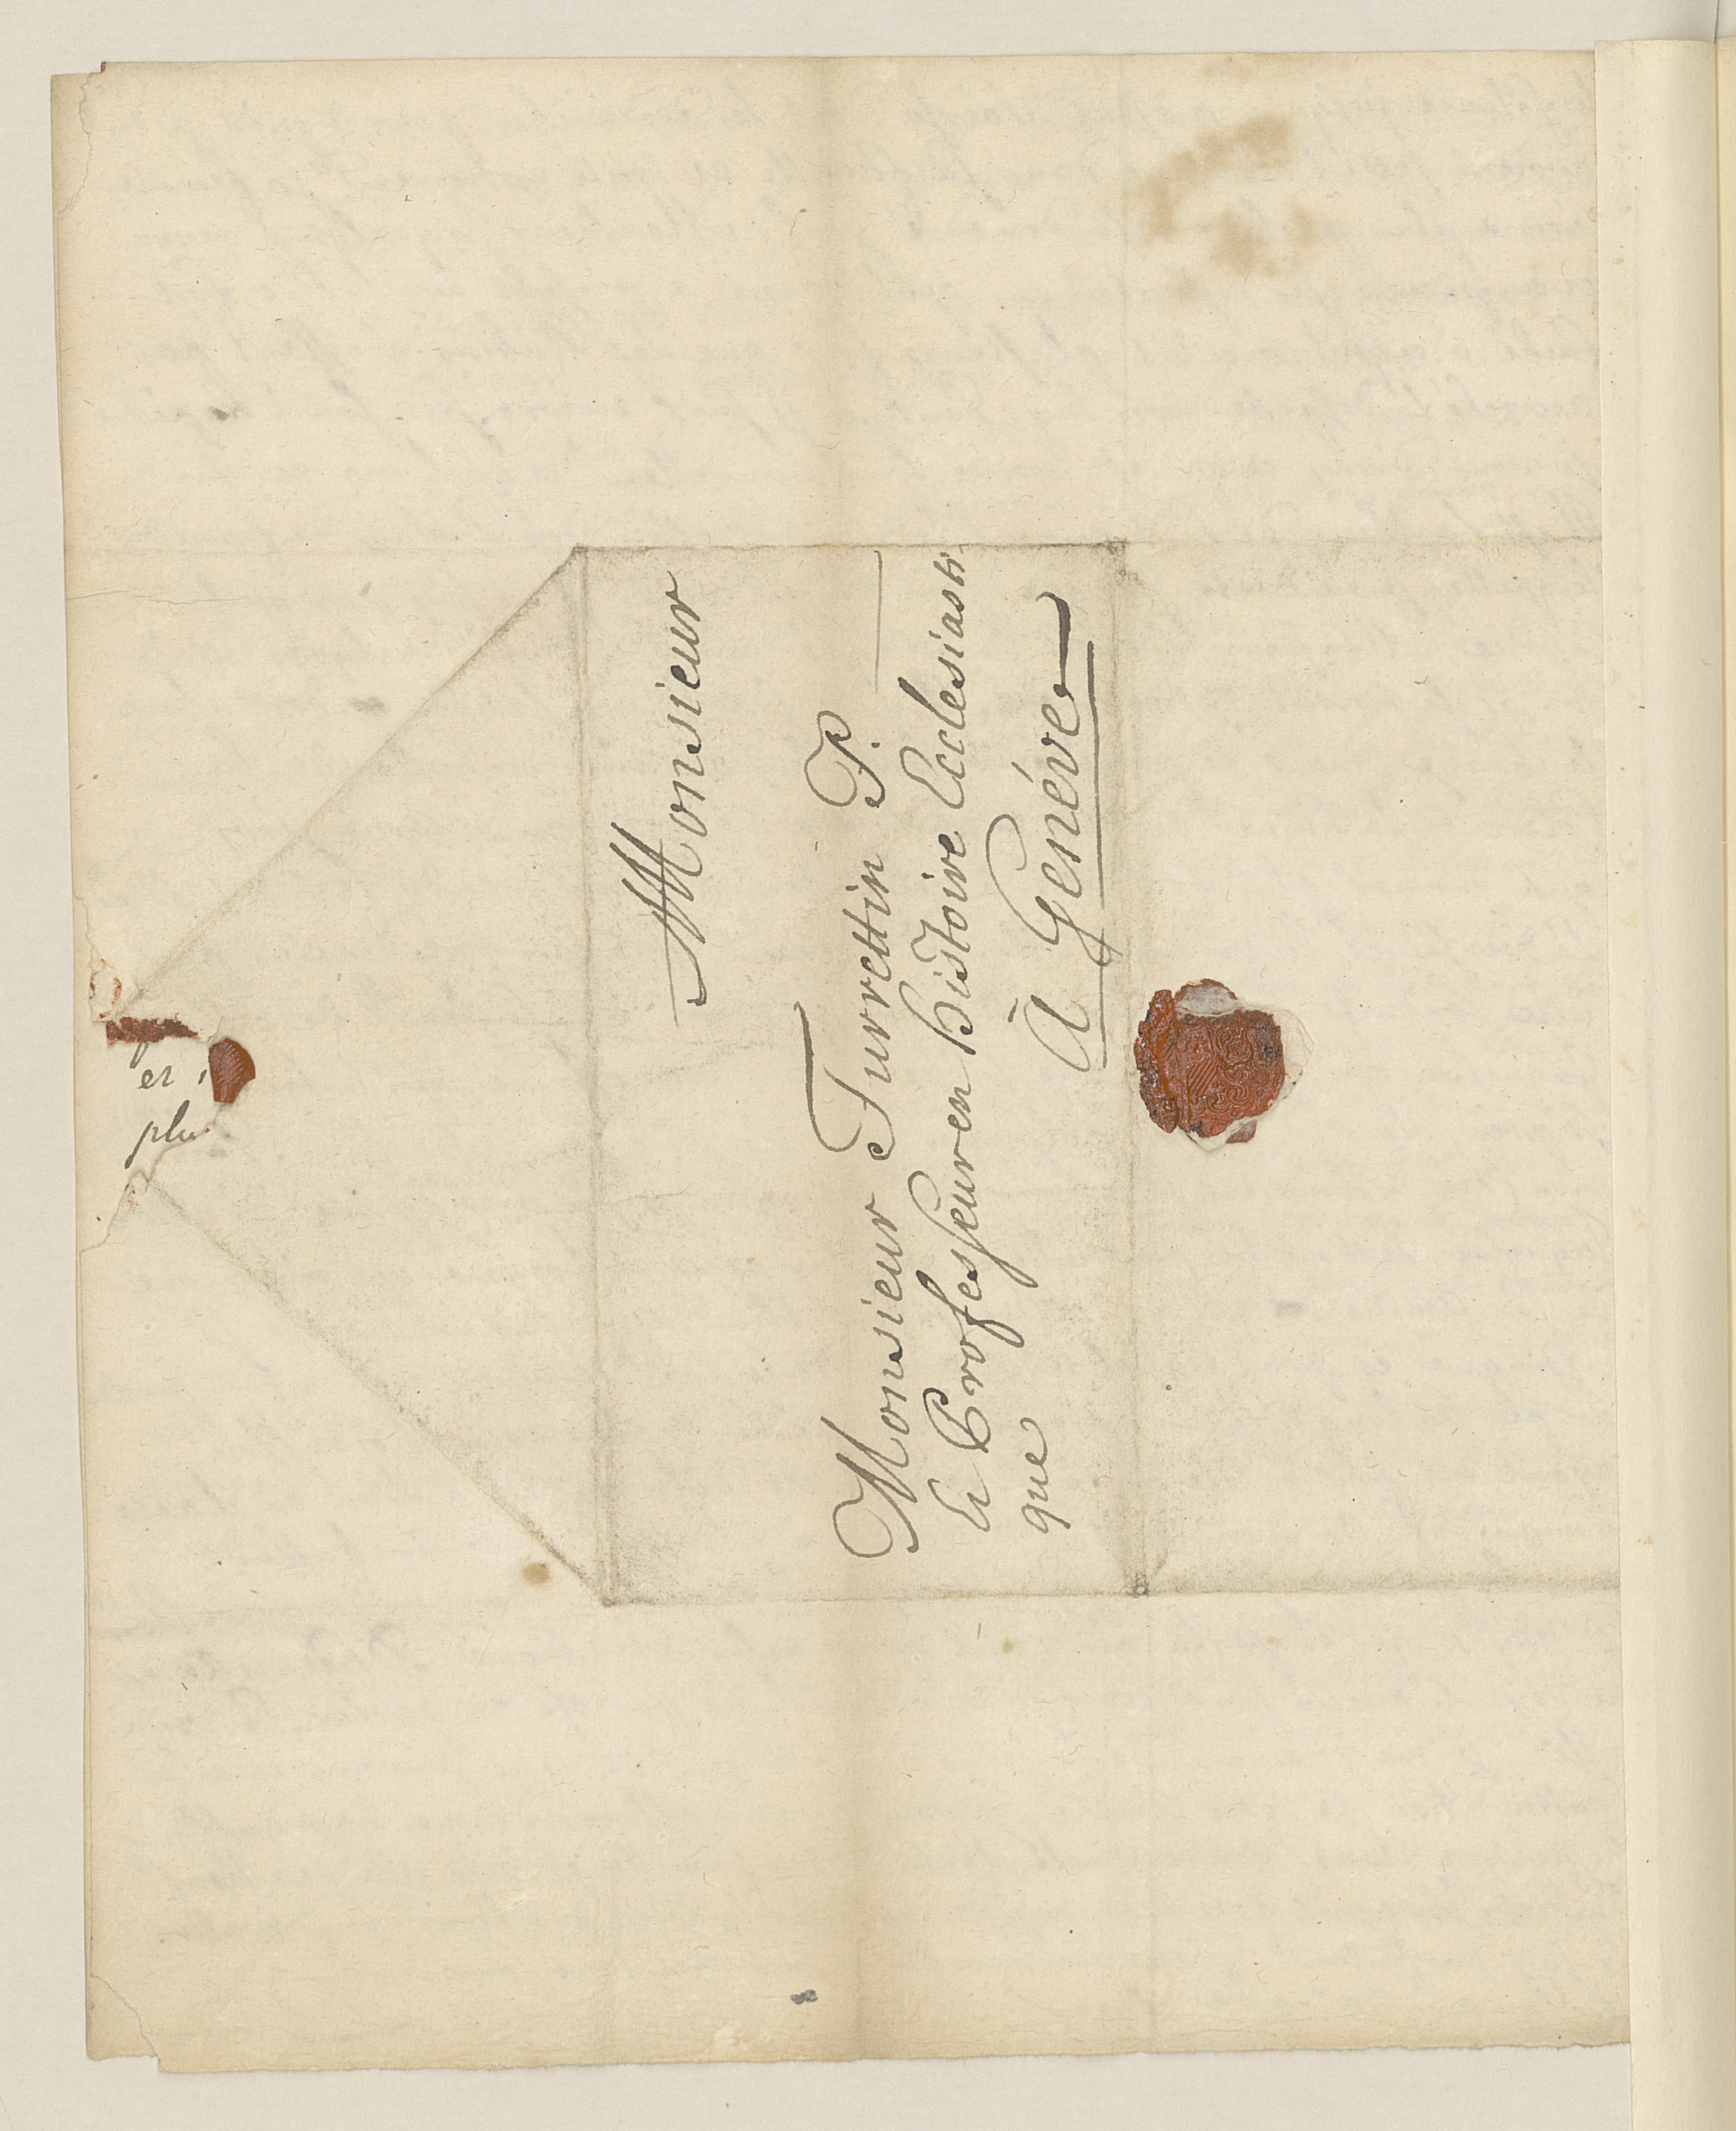 Monsieur
Monsieur Turrettin P.
Et Professeur en histoire Ecclesiasti
que
à Genéve
et
plu